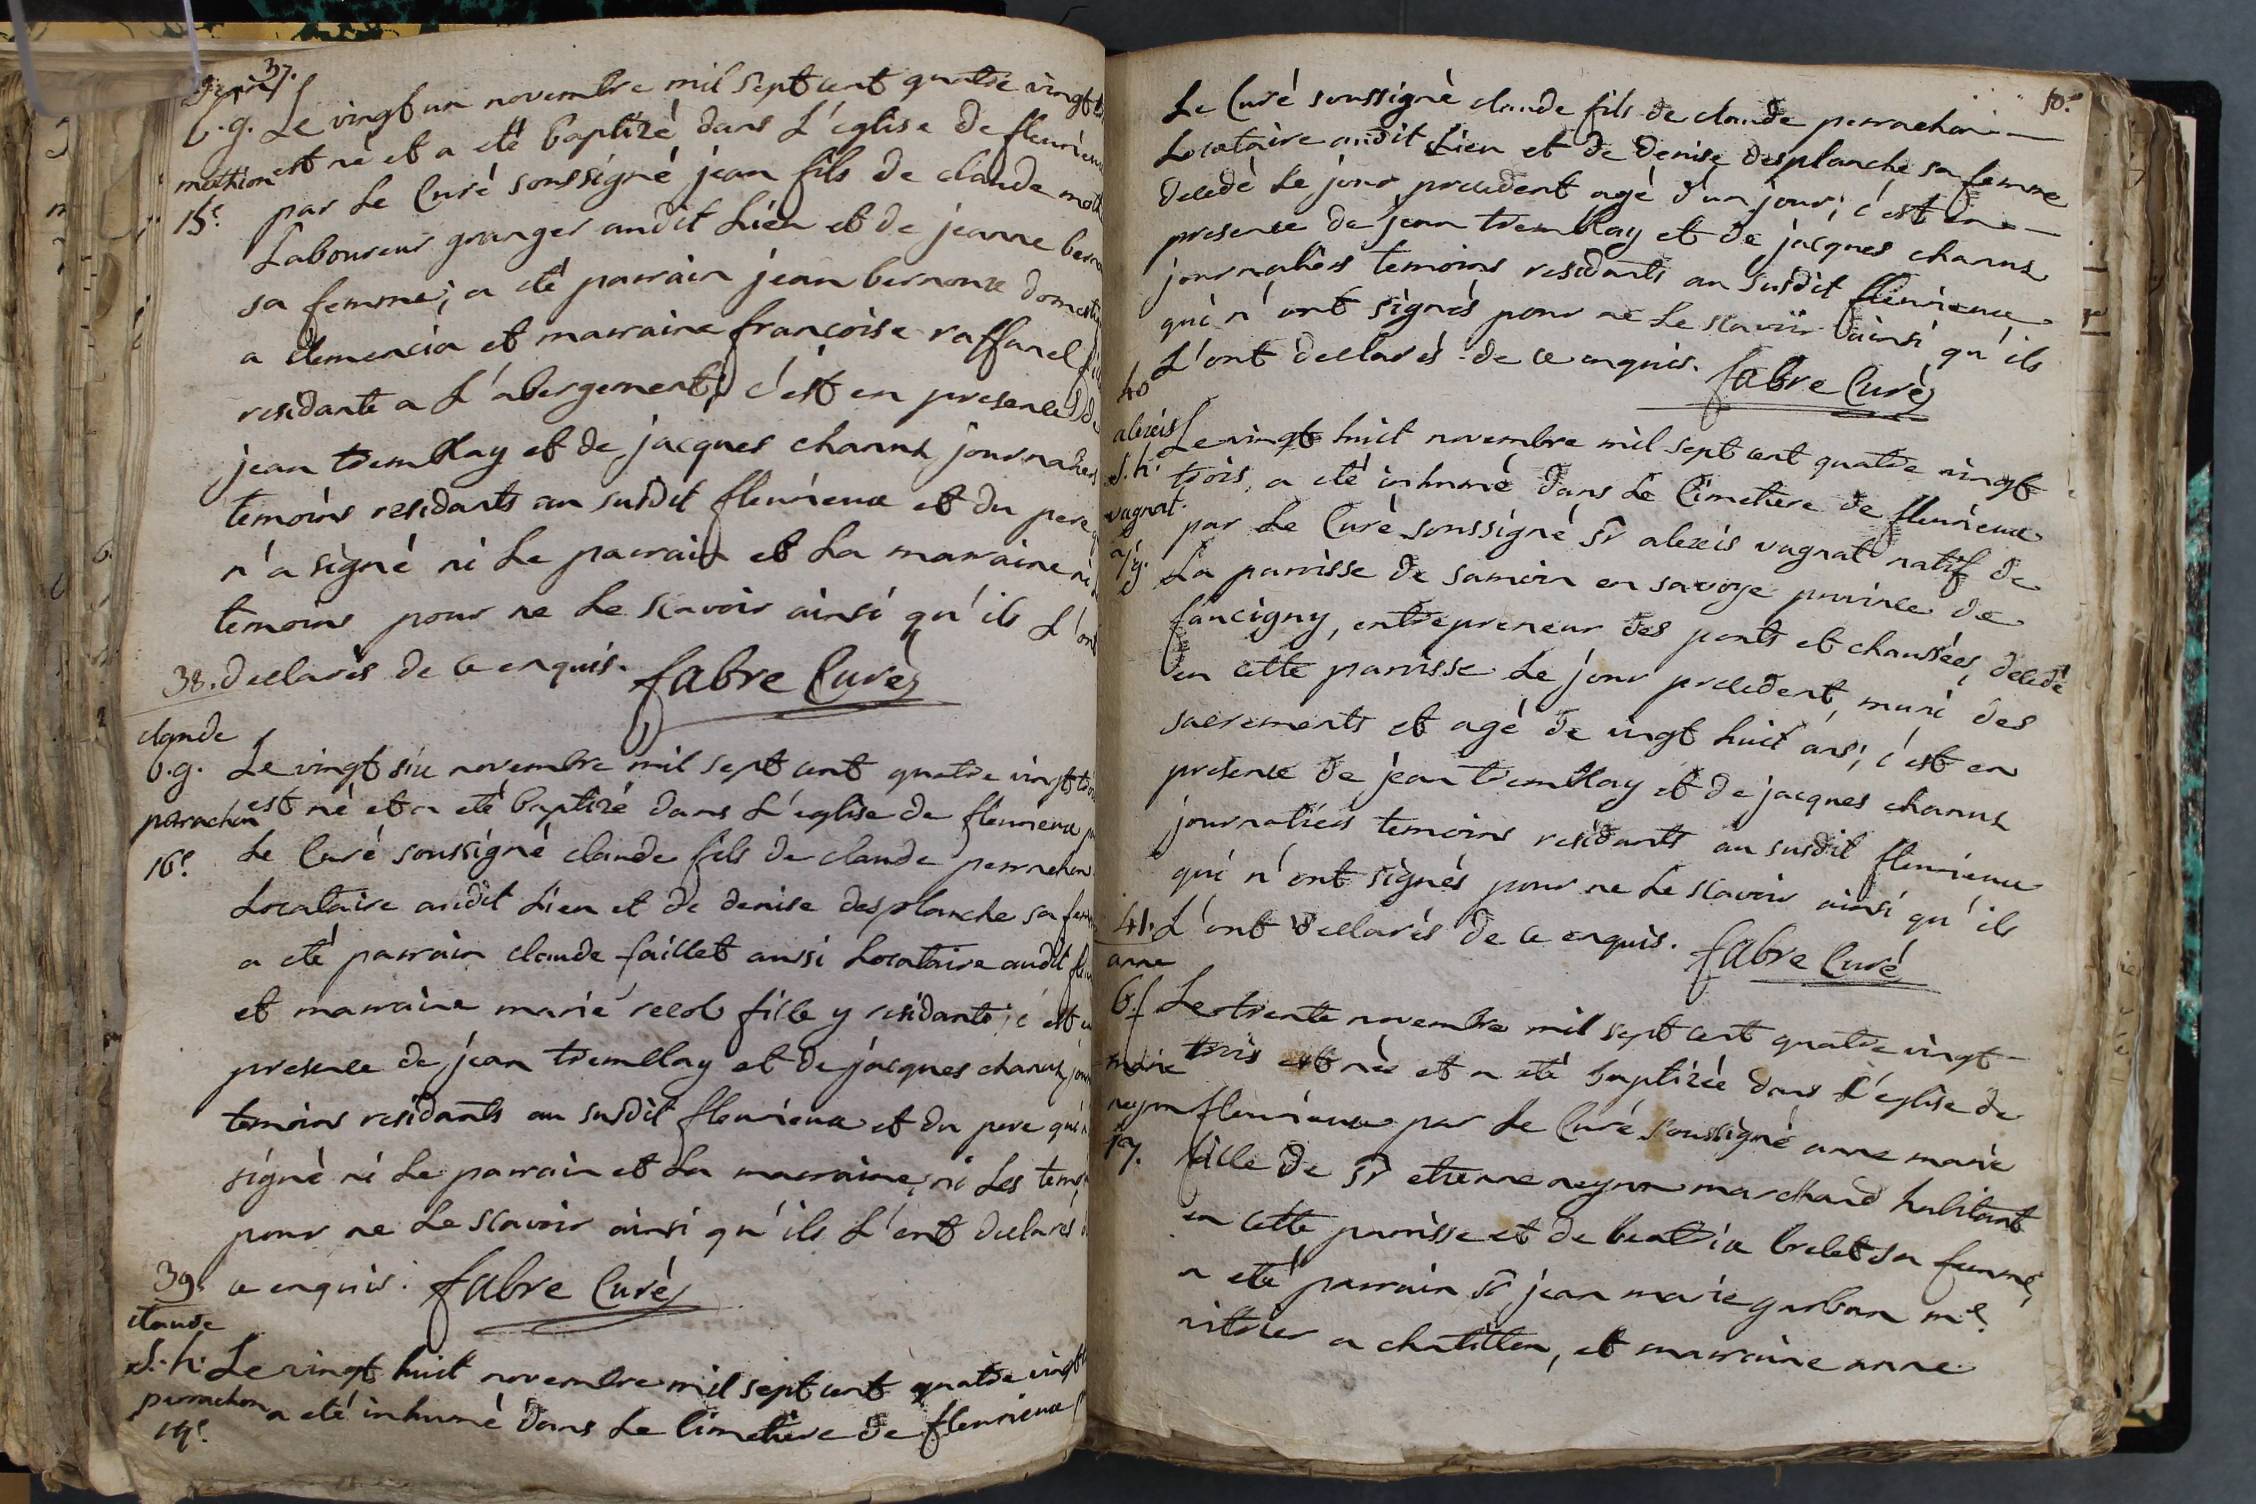 37.
jean
b.g. Le vingt un novembre mil sept cent quatre vingt
mathion est né et a eté baptizé dans L'eglise de fleurieux
15e par Le Curé soussigné jean fils de claude
Laboureur granger audit Lieu et de jeanne
sa femme; a eté parrain jean bernoux
a clemencia et marraine françoise raffanel
residante a L'abergement; c'est en presence de
jean tremblay et de jacques charnx journaliers
temoins residants au susdit fleurieux et du pere
n'a signé ni Le parrain et La marraine ni
temoins pour ne Le scavoir ainsi qu'ils L'ont
38. declarés de ce enquis. fabre Curé
claude
b.g. Le vingt six novembre mil sept cent quatre vingt trois
perrachon est né et a eté baptizé dans L'eglise de fleurieux
16e Le Curé soussigné claude fils de claude perrachon
Locataire audit Lieu et de denise desplanche sa
a eté parrain claude faillet aussi Locataire audit
et marraine marie fille y residante; c'est
presence de jean tremblay et de jacques charnx
temoins residants au susdit fleurieux et du pere qui
signé ni Le parrain et La marraine, ni Les
pour ne Le scavoir ainsi qu'ils L'ont declarés
39. ce enquis. fabre Curé
claude
S.h. Le vingt huit novembre mil sept cent quatre vingt
perrachon a eté inhumé dans Le Cimetiere de fleurieux
50e
Le Curé soussigné claude fils de claude perrachon
Locataire audit Lieu et de denise desplanche sa femme
decedé Le jour precedent agé d'un jour; c'est en
presence de jean tremblay et de jacques charnx
journaliers temoins residants au susdit fleurieux
qui n'ont signés pour ne Le scavoir ainsi qu'ils
40 L'ont declarés de ce enquis. fabre Curé
alexis Le vingt huit novembre mil sept cent quatre vingt
S.h. trois, a eté inhumé dans Le Cimetiere de fleurieux
vagnat. par Le Curé soussigné Sr alexis vagnat natif de
La parroisse de samoin en savoye province de
faucigny, entrepreneur des ponts et chaussées, decedé
en cette parroisse Le jour precedent, muni des
sacrements et agé de vingt huit ans; c'est en
presence de jean tremblay et de jacques charnx
journaliers temoins residants au susdit fleurieux
qui n'ont signés pour ne Le scavoir ainsi qu'ils
41. L'ont declarés de ce enquis. fabre Curé
anne
b.f Le trente novembre mil sept cent quatre vingt
marie trois est née et a eté baptizée dans L'eglise de
neyron fleurieux par Le Curé soussigné anne marie
17. fille de Sr etienne neyron marchand habitant
en cette parroisse et de beatrix brelet sa femme,
a eté parrain Sr jean marie garbon me
vitrier a chatillon, et marraine anne